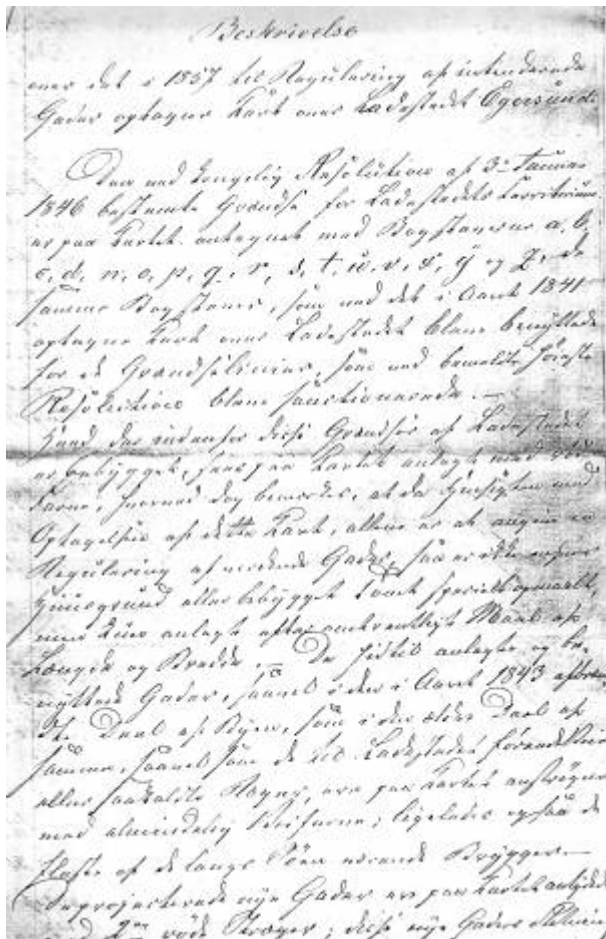 Beskrivelse
over det i 1857 til Regulering af intenderede
Gader optagne Kart over Ladestedet Egersund.
Den ved kongelig Resolution af 3die Januar
1846 bestemte Grændse for Ladestedets Territorium
er paa Kartet antegnet med Bogstaverne a, b,
c, d, n, o, p, q, r, s, t, u, v, x, y og z, de
samme Bogstaver, som ved det i Aaret 1841
optagne Kart over Ladestedet bleve benyttede
for de Grændselinier, som ved bemeldte høieste
Resolution bleve sanctionerede. —
Hvad der indenfor disse Grændser af Ladestedet
er bebygget, sees paa Kartet anlagt med
Farve, hvorved dog bemærkes, at da Hensigten med
Optagelsen af dette Kart, allene er at angive en
Regulering af værende Gader, saa er ikke enhver
Huusgrund eller bebygget Tomt specielt opmaalt,
men kun anlagt efter omtrentligt Maal af
Længde og Bredde. — De hidtil anlagte og be-
nyttede Gader, saavel i den i Aaret 1843 afbrændte
Deel af Byen, som i den ældre Deel af
samme, saavel som de til Ladestedet førende Veie
eller saakaldte, ere paa Kartet
med almindelig Veifarve; ligeledes ogsaa de
fleste af de langs Søen værende Brygger. —
De projecterede nye Gader ere paa Kartet antydet
med 2de røde Streger; disse nye Gaders